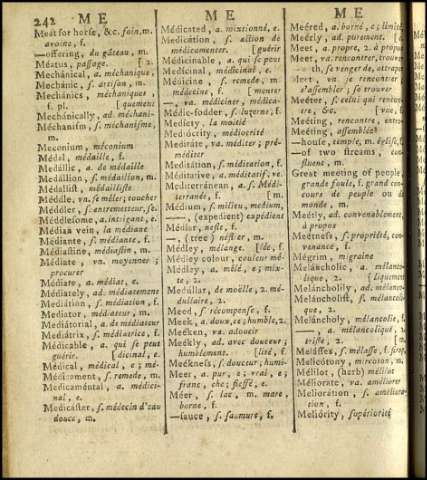 242 M E
Meat for horse, &c. foin, m.
avoine, f.
—offering, du gâteau, m.
Méatus, passage. [2.
Mechánical, a. méchanique,
Mechánic, s. artisan, m.
Mechánics, méchaniques,
f. pl. [quement
Mechánically, ad. méchani-
Méchanism, s. méchanisme,
m.
Meconium, méconium
Médal, médaille, f.
Medállic, a. de médaille
Medállion, s. médaillon, m.
Médallist, médailliste
Méddle, va. se mêler; toucher
Méddler, s. entremetteur, se.
Méddlesome, a. intrigant, e.
Médian vein, la médiane
Médiante, médiante, f.
Médiastine, médiastin, m.
Médiate, vn. moyenner;
procurer
Médiate, a. médiat, e.
Médiately, ad. médiatement
Mediátion, s. médiation, f.
Mediator, médiateur, m.
Mediatórial, a. de médiateur
Mediátrix, s. médiatrice, f.
Médicable, a. qui se peut
guérir. [dicinal, e.
Médical, médical, e; mé-
Médicament, s. remede, m.
Medicaméntal, a. médici-
nal, e.
Medicáster, s. médecin d'eau
douce, m.
M E
Médicated, a. mixtionné, e.
Médicátion, s. action de
médicamenter. [guérir
Médicinable, a. qui se peut
Medícinal, médicinal, e.
Médicine, s. remede, m.
médecine, f. [menter
—, va. médiciner, médica-
Médic-fodder, s. luzerne, f.
Medíety, la moitié
Mediócrity, médiocrité
Méditate, va. méditer; pré-
méditer
Meditátion, s. méditation, f.
Méditative, a. méditatif, ve.
Mediterránean, a. s. Médi-
terranée, f. [m.
Médium, s. milieu, medium,
—, (expedient) expédient
Médlar, nefle, f.
—, (tree) néflier, m.
Médley, mélange. [lée, f.
Médley colour, couleur mê-
Médley, a. mêlé, e; mix-
te, 2.
Medúllar, de moëlle, 2. mé-
dullaire, 2.
Meed, s. récompense, f.
Meek, a. doux, ce; humble, 2.
Meéken, va. adoucir
Meékly, ad. avec douceur;
humblement. [lité, f.
Meékness, s. douceur; humi-
Meer, a. pur, e; vrai, e;
franc, che; fieffé, e.
Méer, s. lac, m. mare,
borne, f.
—sauce, s. saumure, f.
M E
Meéred, a. borné, e; limité
Meérly, ad. purement. [
Meet, a. propre, 2. à propos
Meet, va. rencontrer, trouver
—th, se venger de, attraper
Meet, vn. se
s'assembler; se trouver
Meéter, s. celui qui rencon-
tre, &c. [vue, f.
Meéting, rencontre, entre-
Meéting, assemblée
—house, temple, m. église, f.
—of two streams, con-
fluent, m.
Great meeting of people,
grande foule, f. grand con-
cours de peuple ou de
monde, m.
Meétly, ad. convenablement,
à propos
Meétness, s. propriété, con-
venance, f.
Mégrim, migraine
Melanchólic, a. mélanco-
lique, 2. [liquement
Melanchólily, ad. mélanco-
Melanchólist, s. mélancolí-
que, 2.
Melancholy, mélancolie, f.
—, a. mélancolique, 2.
triste, 2. m.
Melásses, s. mélasse, f. sirop,
Melicótony, mirecoton, m.
Mélilot, (herb) mélilot
Méliorate, va. améliorer
Melioration, s. améliora-
tion, f.
Melióríty, supériorité